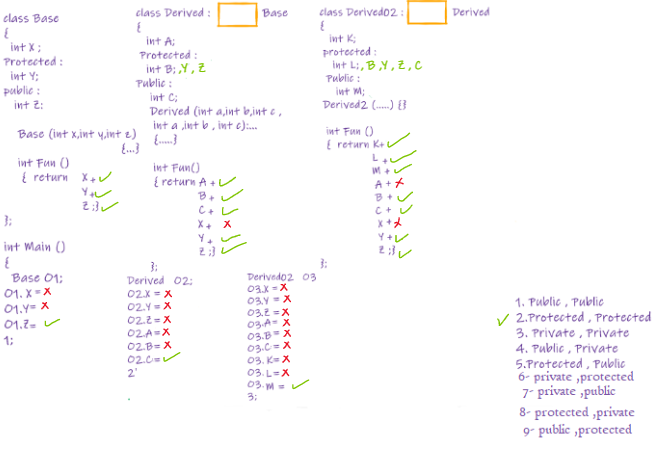 class Base
{
int X ;
Protected :
int Y;
public :
int Z:
Base (int x,int y,int z)
{...}
int Fun ()
{ return X +
Y +
Z ;}
};
int Main ()
{
Base O1;
O1. X = X
O1.Y= X
O1.Z=
1;
class Derived : Base
{
int A;
Protected :
int B; ,Y , Z
Public :
int C;
Derived (int a,int b,int c ,
int a ,int b , int c):...
{.....}
int Fun()
{ return A +
B +
C +
X + X
Y +
Z ;}
};
Derived O2;
O2.X = X
O2.Y = X
O2.Z = X
O2.A= X
O2.B= X
O2.C=
2'
.
class Derived02 : Derived
{
int K;
protected :
int L; , B ,Y , Z , C
Public :
int M;
Derived2 (.....) {}
int Fun ()
{ return K+
L +
M +
A + X
B +
C +
X + X
Y +
Z ;}
};
Derived02 O3
O3.X = X
O3.Y = X
O3.Z = X
O3.A= X
O3.B = X
O3.C = X
O3. K= X
O3. L= X
O3. M =
3;
1. Public , Public
2.Protected , Protected
3. Private , Private
4. Public , Private
5.Protected , Public
6- private ,protected
7- private ,public
8- protected ,private
9- public ,protected